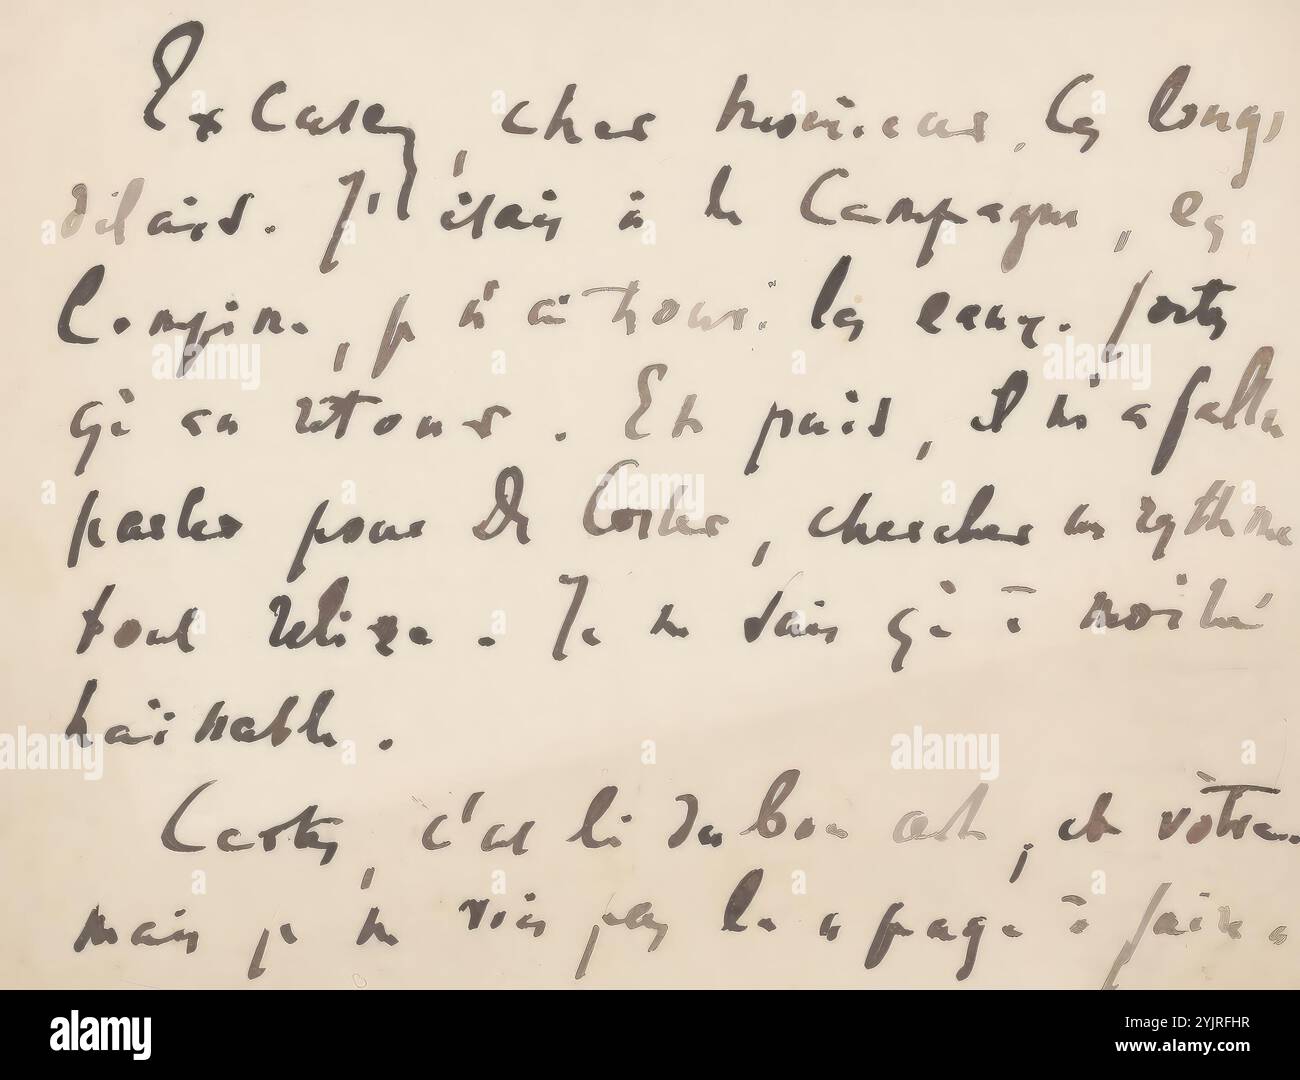 Excusez, cher monsieur, ces longs
délais. J'étais à la Campagne, es
Compiègne, je n'ai trouvé les eaux-fortes
qu'au retour. Et puis, il m'a fallu
parler pour De Coster, chercher un rythme
tout
Je ne sais qu'à moitié
haïssable.
Certes, c'est là du bon art, et vôtre
mais je ne vois pas la page à faire
alamy
Image ID: 2YJRFHR
www.alamy.com